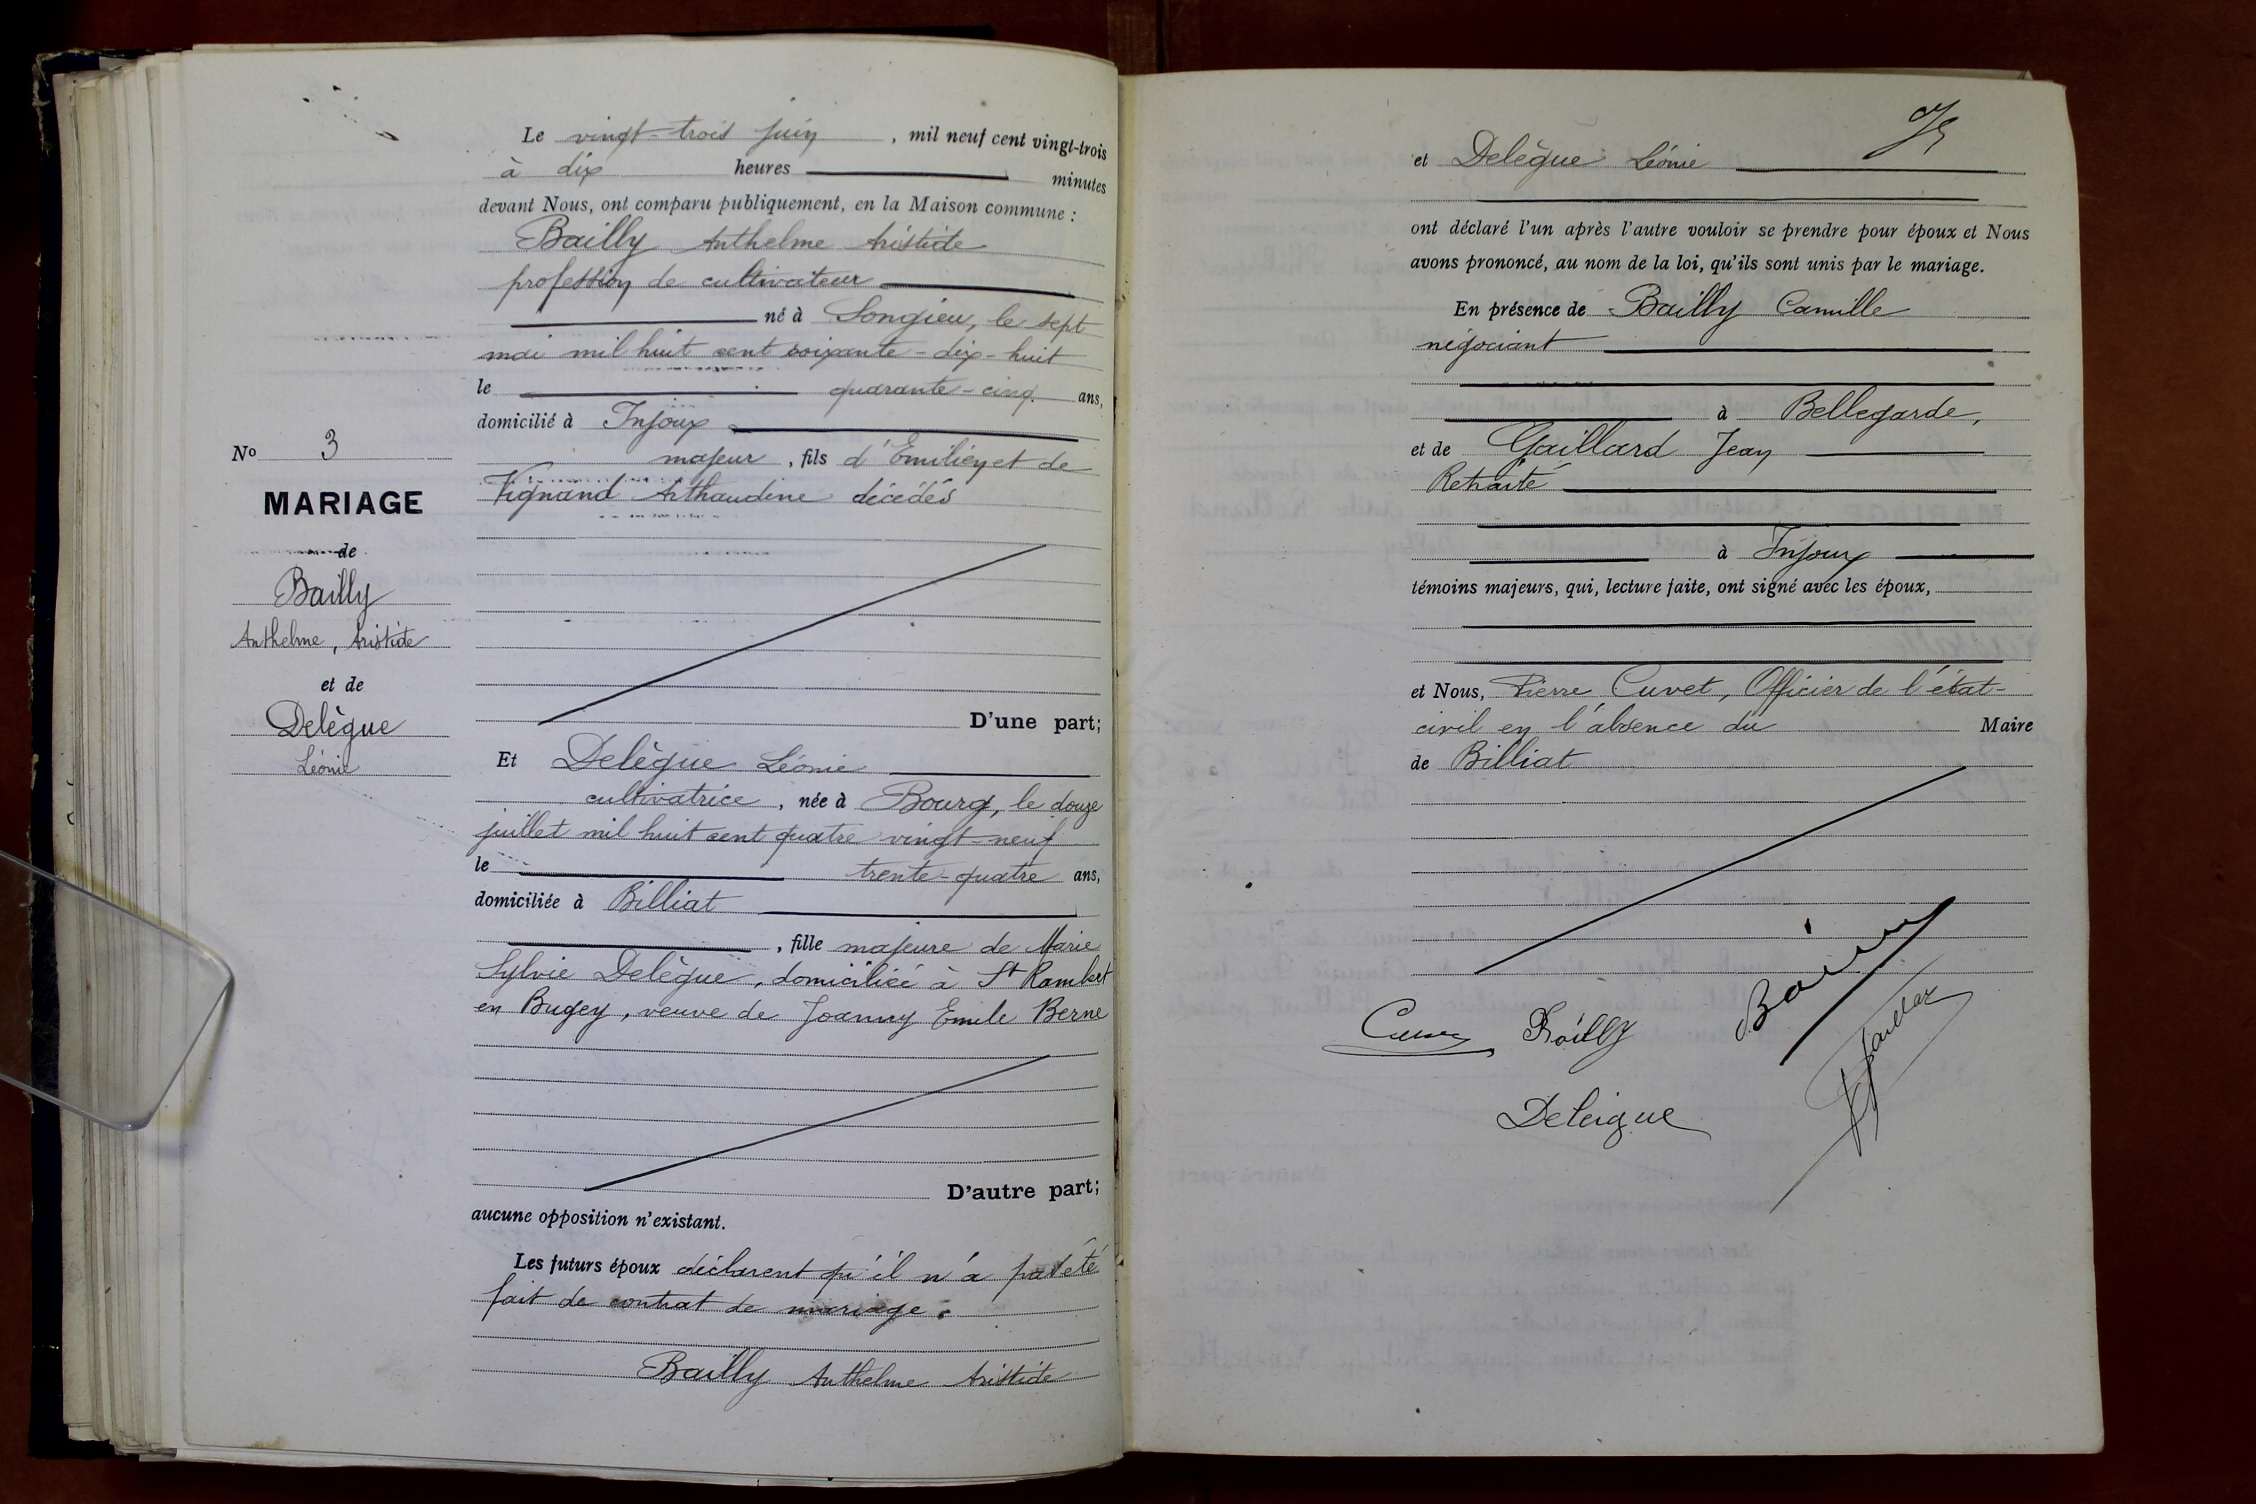 Le vingt-trois juin, mil neuf cent vingt-trois
à dix heures minutes
devant Nous, ont comparu publiquement, en la Maison commune :
Bailly Anthelme Aristide
profession de cultivateur
né à Songieu, le sept
mai mil huit cent soixante-dix-huit
le quarante-cinq ans,
domicilié à Injoux
majeur, fils d'Emilien et de
Vignand Arthaudine décédés
D'une part;
No 3
MARIAGE
de
Bailly
Anthelme, Aristide
et de
Delègue
Léonie
Et Delègue Léonie
cultivatrice, née à Bourg, le douze
juillet mil huit cent quatre vingt-neuf
le trente-quatre ans,
domiciliée à Billiat
, fille majeure de Marie
Sylvie Delègue, domiciliée à St Rambert
en Bugey, veuve de Joanny Emile Berne
D'autre part;
aucune opposition n'existant.
Les futurs époux déclarent qu'il n'a pas été
fait de contrat de mariage.
Bailly Anthelme Aristide
et Delègue Léonie
ont déclaré l'un après l'autre vouloir se prendre pour époux et Nous
avons prononcé, au nom de la loi, qu'ils sont unis par le mariage.
En présence de Bailly Camille
négociant
à Bellegarde,
et de Gaillard Jean
Retraité
à Injoux
témoins majeurs, qui, lecture faite, ont signé avec les époux,
et Nous, Pierre Cuvet, Officier de l'état-
civil en l'absence du Maire
de Billiat
Bailly
Deleigue